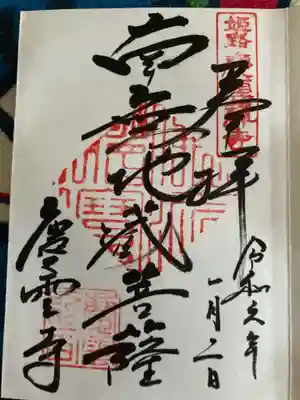 奉拝
南無地蔵菩薩
慶雲寺
令和六年
一月二日
姫路